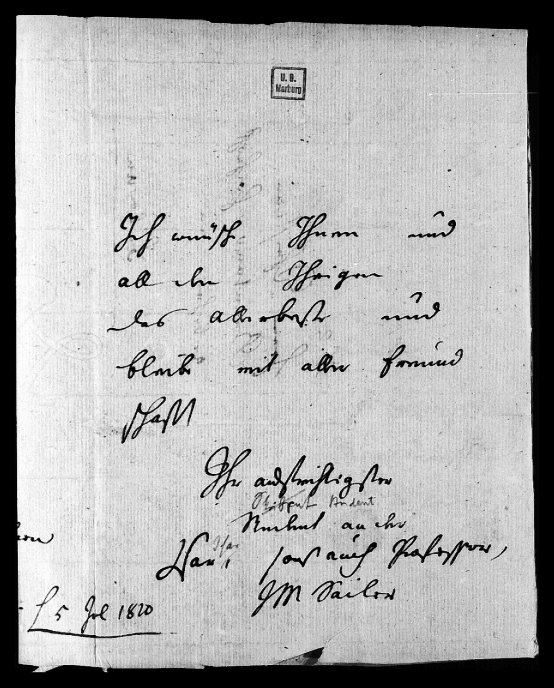 U. B.
Marburg
Ich wünsche Ihnen und
all den Ihrigen
das allerbeste und
bleibe mit aller Freund
schaft
Ihr aufrichtigster
Student
Student an der
Isar
Isar, sonst auch Professor,
JM Sailer
5 Jul 1820